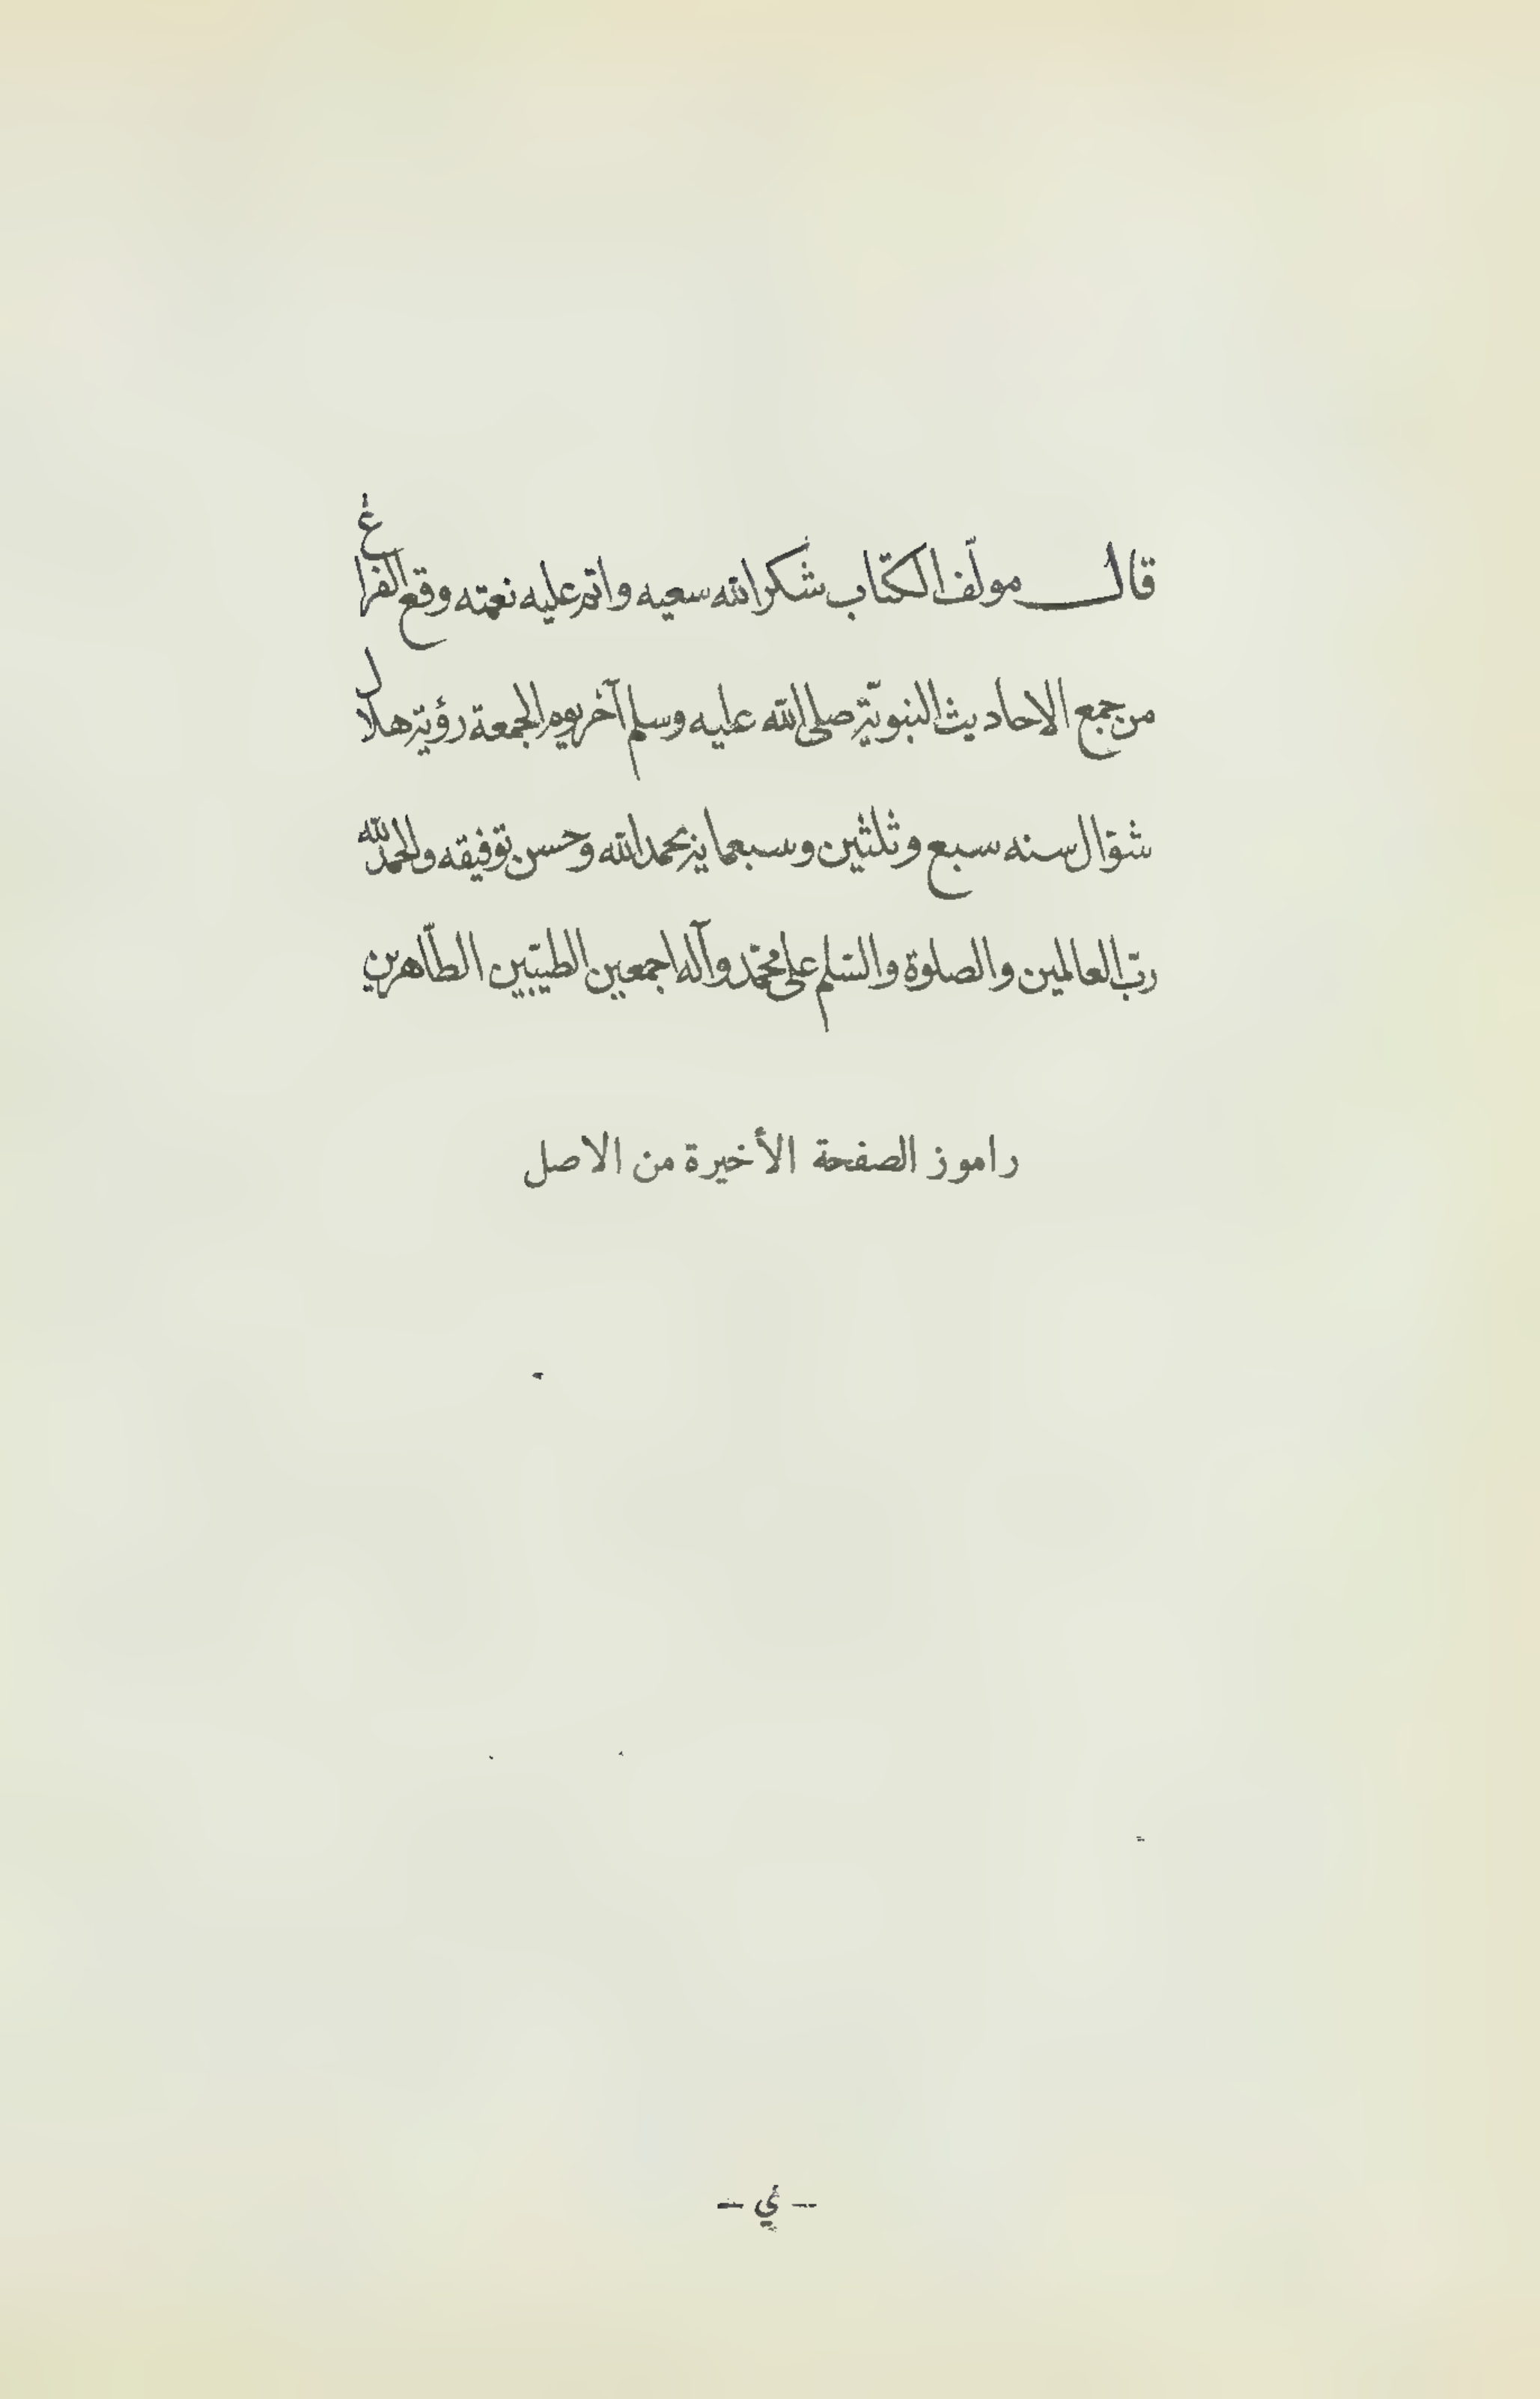 قال مولّف الكتاب شكر الله سعيه واتم عليه نعمته وقع الفراغ
من جمع الاحاديث النبويّة صلى الله عليه وسلم آخر يوم الجمعة رؤية هلال
شوّال سنه سبع وثلثين وسبعماية بحمد الله وحسن توفيقه والحمد لله
ربّ العالمين والصلوة والسّلم على محمّد وآله اجمعين الطيّبين الطّاهرين
راموز الصفحة الأخيرة من الاصل